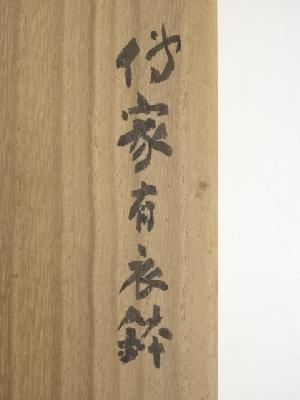 傳家有衣鉢